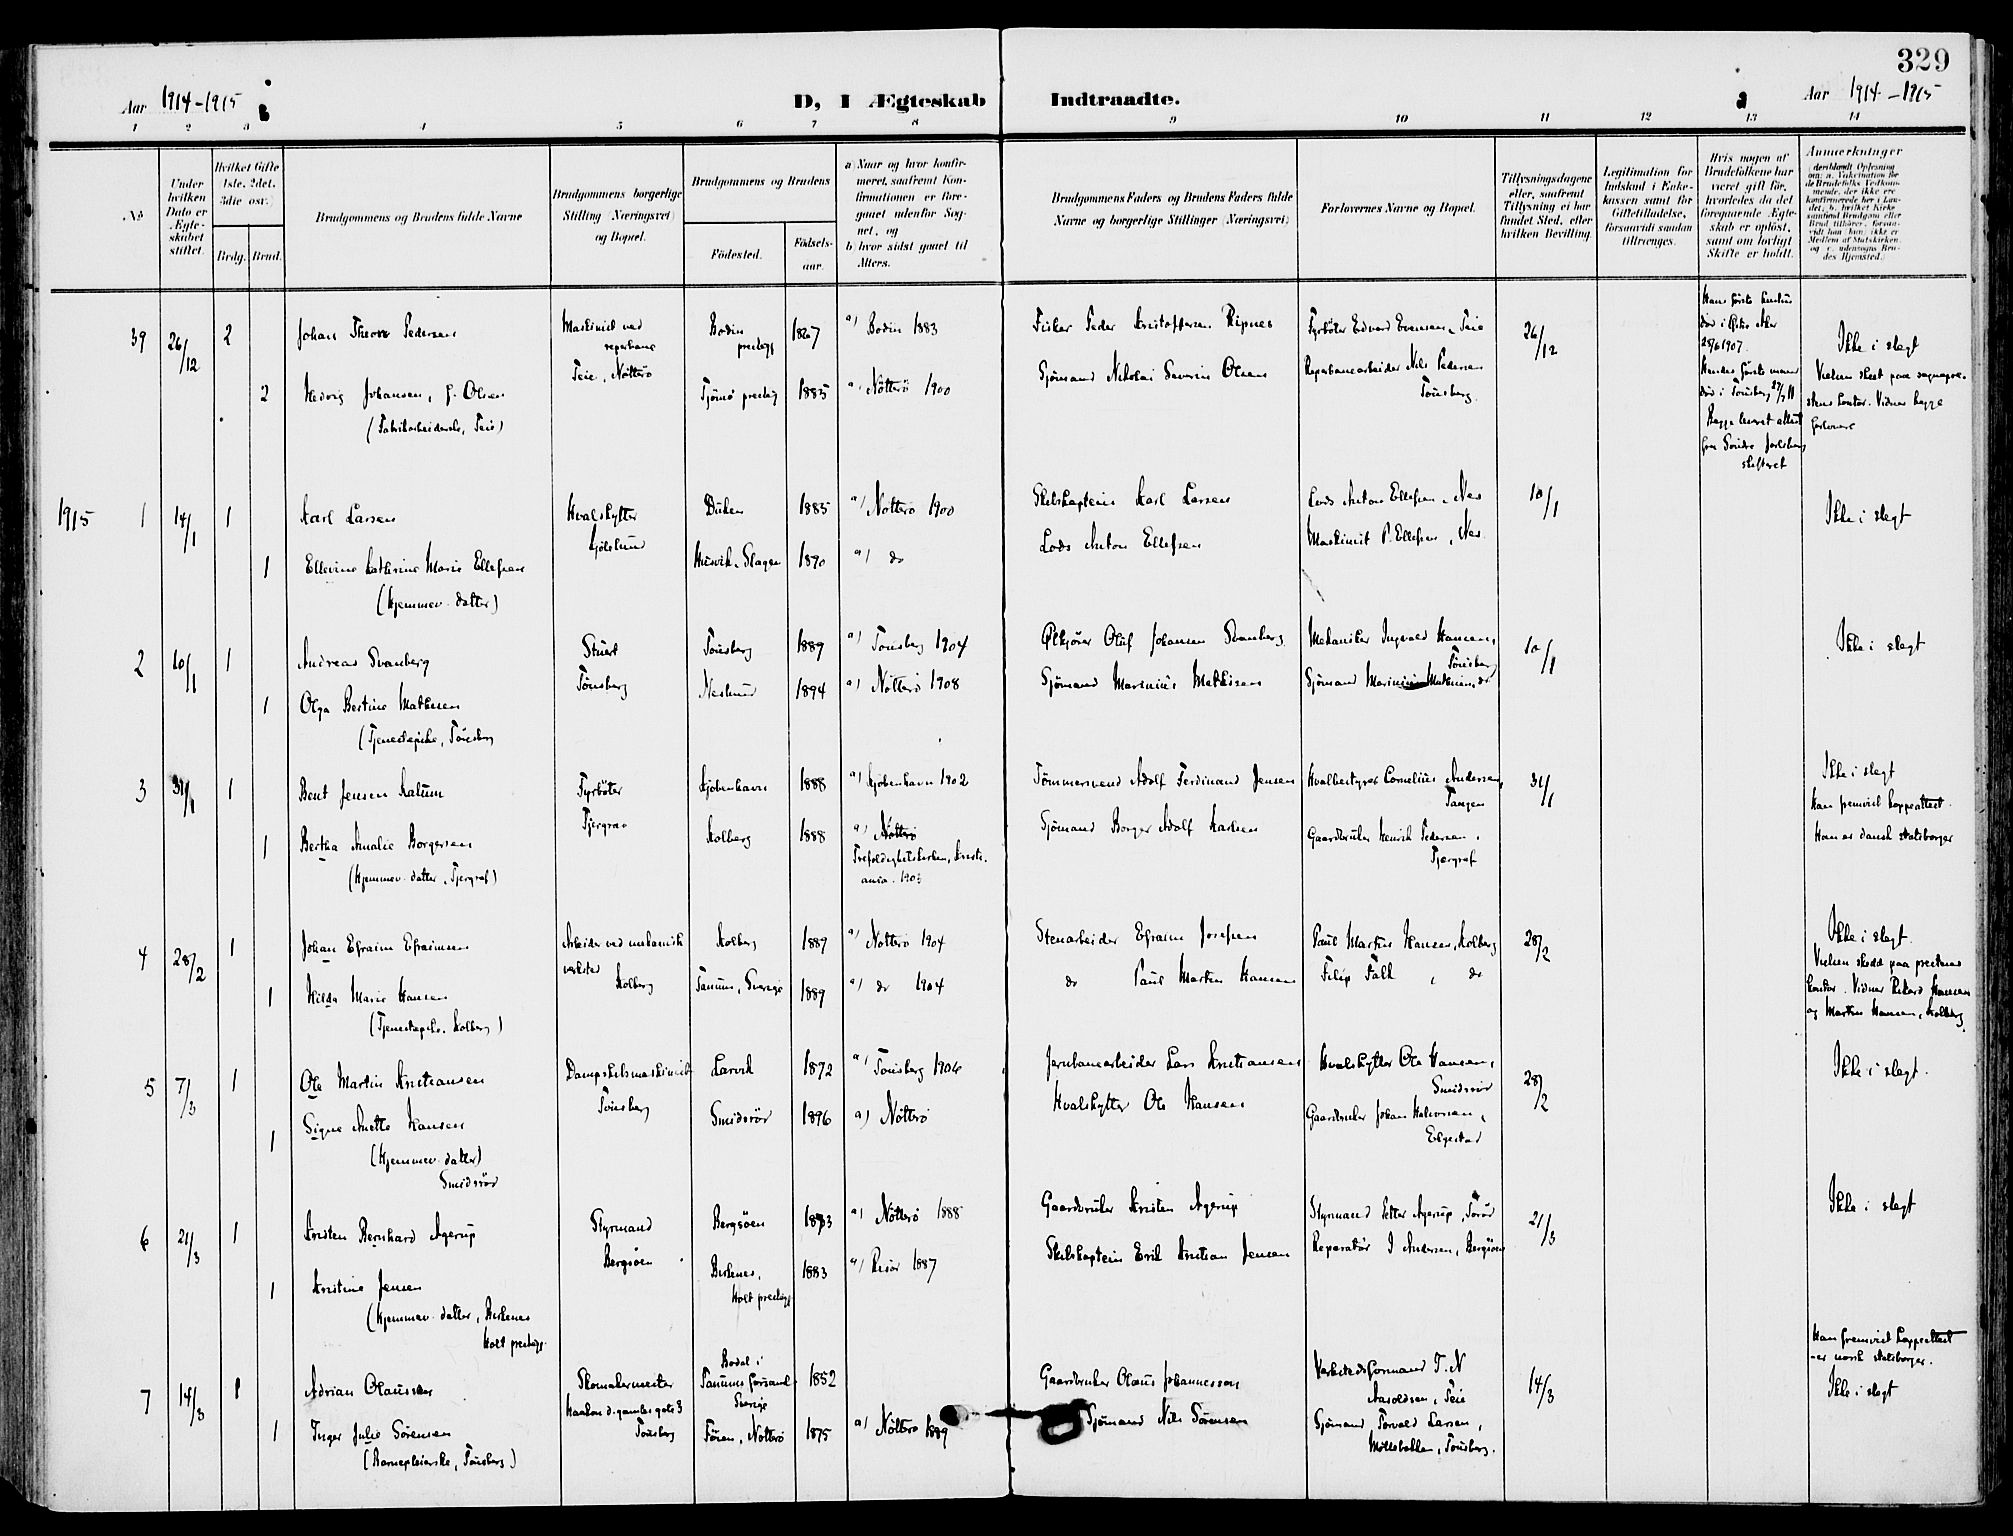 329
Aar 1914-1915
D, I Ægteskab Indtraadte.
Aar 1914-1915
1 2 3 4 5 6 7 8 9 10 11 12 13 14
No.
Under hvilken Dato er Ægteskabet stiftet.
Hvilket Gifte 1ste, 2det, 3die osv.
Brdg. Brud.
Brudgommens og Brudens fulde Navne
Brudgommens borgerlige Stilling (Næringsvei) og Bopæl.
Brudgommens og Brudens
Födested.
Födselsaar.
a) Naar og hvor konfirmeret, saafremt Konfirmationen er foregaaet udenfor Sognet, og
b) hvor sidst gaaet til Alters.
Brudgommens Faders og Brudens Faders fulde Navne og borgerlige Stillinger (Næringsvei)
Forlovernes Navne og Bopæl.
Tillysningsdagene eller, saafremt Tillysning ei har fundet Sted, efter hvilken Bevilling.
Legitimation for Indskud i Enkekassen samt for Giftetilladelse, forsaavidt saadan tiltrænges.
Hvis nogen af Brudefolkene har været gift för, hvorledes da det foregaaende Ægteskab er oplöst, samt om lovligt Skifte er holdt.
Anmærkninger
39 26/12 2 Johan Pedersen
Maskinist ved
Teie, Nötterö
Bodin prestegj 1867
a) Bodin 1883
Fisker Peder Kristoffersen Ripnes
Fyrböter Edvard Evensen, Teie
26/12
2 Hedvig Johansen, f. Olsen
(Fabrikarbeiderske, Teie)
Tjömö prestegj 1885
a) Nötterö 1900
Sjömand Nikolai Severin Olsen
Reperbanearbeider Nils Pedersen
Tönsberg.
Ikke i slegt
1915 1 14/1 1 Karl Larsen
Hvalskytter
1885
a) Nötterö 1900
Skibskaptein Karl Larsen
Lods Anton Ellefsen, Nes
10/1
Ikke i slegt
1 Ellevine Kathrine Marie Ellefsen
(Hjemmev. datter)
Husvik, Slagen 1890
a) do
Lods Anton Ellefsen
Maskinist P. Ellefsen, Nes.
2 10/1 1 Andreas Svanberg
Stuert
Tönsberg
Tönsberg 1889
a) Tönsberg 1904
Oluf Johansen Svanberg
Mekaniker Ingvald Hansen,
Tönsberg
10/1
Ikke i slegt
1 Olga Bertine Mathisen
(Tjenestepike, Tönsberg
1894
a) Nötterö 1908
Sjömand Marinius Mathisen
Sjömand Marinius Mathisen, do
3 31/1 1 Bent Jensen Kalum
Fyrböter
Kjöbenhavn 1888
a) Kjöbenhavn 1902
Tömmersvend Adolf Ferdinand Jensen
Hvalbestyrer Cornelius Andersen,
Tangen
31/1
Ikke i slegt
Han fremvist koppeattest.
Han er dansk statsborger
1 Bertha Amalie Borgersen
(Hjemmev. datter, Tjergraf)
Kolberg 1888
a) Nötterö
Trefoldighetskirken, Kristiania.
Sjömand Borger Adolf Karlsen
Gaardbruker Henrik Pedersen,
Tjergraf
4 28/2 1 Johan Efraim Efraimsen
Arbeider ved mekanisk
verksted
Kolberg
Kolberg 1889
a) Nötterö 1904
Stenarbeider Efraim Josefsen
Paul Martin Hansen, Kolberg
28/2
Ikke i slegt.
Vielsen skedd paa prestens
kontor. Vidner Rikard Hansen
og Martin Hansen, Kolberg
1 Hilda Marie Hansen
(Tjenestepike, Kolberg)
Tanum, Sverige 1889
a) do 1904
do Paul Martin Hansen
Filip Falk, do
5 7/3 1 Ole Martin Kristiansen
Dampskibsmaskinist
Tönsberg
Larvik 1892
a) Tönsberg 1906
Jernbanearbeider Lars Kristiansen
Hvalskytter Ole Hansen,
Smidsrör
28/2
Ikke i slegt.
1 Signe Anette Hansen
(Hjemmev. datter)
Smidsrör
Smidsrör 1896
a) Nötterö
Hvalskytter Ole Hansen
Gaardbruker Johan Halvorsen,
Elgestad
6 21/3 1 Kristen Bernhard Agerup
Styrmand
Bergsöen
Bergsöen 1873
a) Nötterö 1888
Gaardbruker Kristen Agerup
Styrmand Petter Agerup, Toröd
21/3
Ikke i slegt
1 Kristine Jensen
(Hjemmev. datter, Birkenes
Holt prestegj.
Birkenes, Holt prestegj 1883
a) Risör 1887
Skibskaptein Erik Kristian Jensen
Reparatör I Andersen, Bergsöen
7 14/3 1 Adrian Olaussen
Skomakermester
Haakon d. gamles gate 3
Tönsberg
Sverige 1852
Gaardbruker Olaus Johannesson
Verkstedsformand T. N
Aasoldsen, Teie
14/3
Han fremvist koppeattest
- er norsk statsborger.
Ikke i slegt
1 Inger Julie Sörensen
(Barnepleierske, Tönsberg)
Föien, Nötterö 1875
a) Nötterö 1889
Sjömand Nils Sörensen
Sjömand Torvald Larsen,
Möllebakken, Tönsberg.